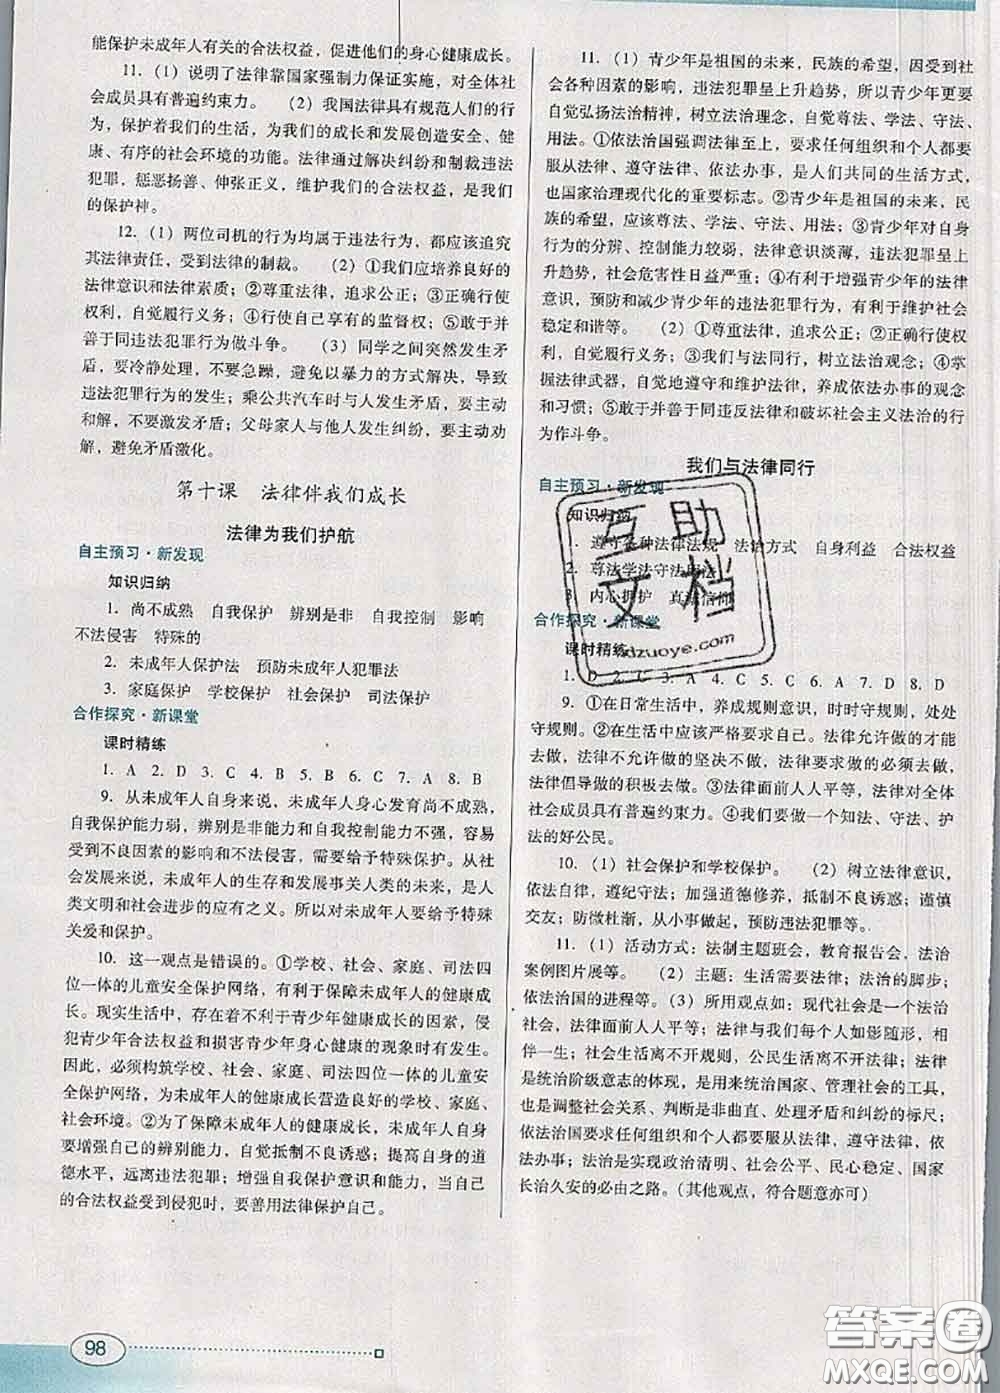 能保护未成年人有关的合法权益，促进他们的身心健康成长。
11.（1）说明了法律靠国家强制力保证实施，对全体社
会成员具有普遍约束力。（2）我国法律具有规范人们的行
为，保护着我们的生活，为我们的成长和发展创造安全、健
康、有序的社会环境的功能。法律通过解决纠纷和制裁违法
犯罪，惩恶扬善、伸张正义，维护我们的合法权益，是我们
的保护神。
12.（1）两位司机的行为均属于违法行为，都应该追究
其法律责任，受到法律的制裁。（2）①我们应培养良好的
法律意识和法律素质；②尊重法律，追求公正；③正确行使
权利，自觉履行义务；④行使自己享有的监督权；⑤敢于并
善于同违法犯罪行为做斗争。（3）同学之间突然发生矛
盾，要冷静处理，不要急躁，避免以暴力的方式解决，导致
违法犯罪行为的发生；乘公共汽车时与人发生矛盾，要主动
和解，不要激发矛盾；父母家人与他人发生纠纷，要主动劝
解，避免矛盾激化。
第十课 法律伴我们成长
法律为我们护航
自主预习·新发现
知识归纳
1. 尚不成熟 自我保护 辨别是非 自我控制 影响
不法侵害 特殊的
2. 未成年人保护法 预防未成年人犯罪法
3. 家庭保护 学校保护 社会保护 司法保护
合作探究·新课堂
课时精练
1. A 2. D 3. C 4. B 5. C 6. A 7. A 8. B
9. 从未成年人自身来说，未成年人身心发育尚不成熟，
自我保护能力弱，辨别是非能力和自我控制能力不强，容易
受到不良因素的影响和不法侵害，需要给予特殊保护。从社
会发展来说，未成年人的生存和发展事关人类的未来，是人
类文明和社会进步的应有之义。所以对未成年人要给予特殊
关爱和保护。
10. 这一观点是错误的。①学校、社会、家庭、司法四
位一体的儿童安全保护网络，有利于保障未成年人的健康成
长。现实生活中，存在着不利于青少年健康成长的因素，侵
犯青少年合法权益和损害青少年身心健康的现象时有发生。
因此，必须构筑学校、社会、家庭、司法四位一体的儿童安
全保护网络，为未成年人的健康成长营造良好的学校、家庭、
社会环境。②为了保障未成年人的健康成长，未成年人自身
要增强自己的辨别能力，自觉抵制不良诱惑；提高自身的道
德水平，远离违法犯罪；增强自我保护意识和能力，当自己
的合法权益受到侵犯时，要善用法律保护自己。
98
11.（1）青少年是祖国的未来，民族的希望，因受到社
会各种因素的影响，违法犯罪呈上升趋势，所以青少年更要
自觉弘扬法治精神，树立法治理念，自觉尊法、学法、守法、
用法。①依法治国强调法律至上，要求任何组织和个人都要
服从法律、遵守法律、依法办事，是人们共同的生活方式，
也国家治理现代化的重要标志。②青少年是祖国的未来，民
族的希望，应该尊法、学法、守法、用法；③青少年自身
行为的分辨、控制能力较弱，法律意识淡薄，违法犯罪呈上
升趋势，社会危害性日益严重；④有利于增强青少年的法律
意识，预防和减少青少年的违法犯罪行为，有利于维护社会
稳定和谐等。（2）①尊重法律，追求公正；②正确行使权
利，自觉履行义务；③我们与法同行，树立法治观念；④掌
握法律武器，自觉地遵守和维护法律，养成依法办事的观念
和习惯；⑤敢于并善于同违反法律和破坏社会主义法治的行
为作斗争。
我们与法律同行
自主预习·新发现
知识归纳
1. 遵守各种法律法规 法治方式 自身利益 合法权益
2. 尊法学法守法用法
3. 内心拥护 真诚信仰
合作探究·新课堂
课时精练
1. D 2. C 3. A 4. C 5. C 6. D 7. D 8. D
9. ①在日常生活中，养成规则意识，时时守规则，处处
守规则。②在生活中应该严格要求自己。法律允许做的才能
去做，法律不允许做的坚决不做，法律要求做的必须去做，
法律倡导做的积极去做。③法律面前人人平等，法律对全体
社会成员具有普遍约束力。④我们要做一个知法、守法、护
法的好公民。
10.（1）社会保护和学校保护。（2）树立法律意识，
依法自律，遵纪守法；加强道德修养，抵制不良诱惑；谨慎
交友；防微杜渐，从小事做起，预防违法犯罪等。
11.（1）活动方式：法制主题班会，教育报告会，法治
案例图片展等。（2）主题：生活需要法律；法治的脚步；
依法治国的进程等。（3）所用观点如：现代社会是一个法治
社会，法律面前人人平等；法律与我们每个人如影随形，相
伴一生；社会生活离不开规则，公民生活离不开法律；法律
是统治阶级意志的体现，是用来统治国家、管理社会的工具，
也是调整社会关系、判断是非曲直、处理矛盾和纠纷的标尺；
依法治国要求任何组织和个人都要服从法律，遵守法律，依
法办事；法治是实现政治清明、社会公平、民心稳定、国家
长治久安的必由之路。（其他观点，符合题意亦可）
互助
文档
dzuoye.com
答案圈
MXQE.COM